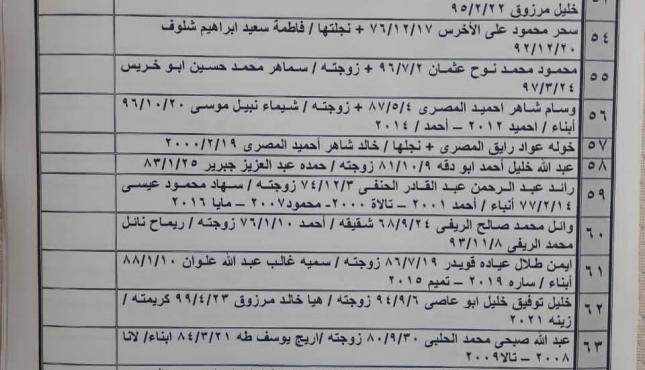 خليل مرزوق ٩٥/٢/٢٢
٥٤ سحر محمود على الأخرس ٧٦/١٢/١٧ + نجلتها / فاطمة سعيد ابراهيم شلوف
٩٢/١٢/٢٠
٥٥ محمود محمد نوح عثمان ٩٦/٧/٢ + زوجته / سماهر محمد حسين ابو خريس
٩٧/٣/٢٤
٥٦ وسام شاهر احميد المصرى ٨٧/٥/٤ + زوجته / شيماء نبيل موسى ٩٦/١٠/٢٠
أبناء / احميد ٢٠١٢ – أحمد / ٢٠١٤
٥٧ خوله عواد رايق المصرى + نجلها / خالد شاهر أحميد المصرى ٢٠٠٠/٢/١٩
٥٨ عبد الله خليل أحمد ابو دقه ٨١/١٠/٩ زوجته / حمده عبد العزيز جبرير ٨٣/١/٢٥
٥٩ رائد عبد الرحمن عبد القادر الحنفى ٧٤/١٢/٣ زوجته / سهاد محمود عيسى
٧٧/٢/١٤ أنباء / أحمد ٢٠٠١ – تالاة ٢٠٠٠- محمود٢٠٠٧ – مايا ٢٠١٦
٦٠ وائل محمد صالح الريفى ٦٨/٩/٢٤ شقيقه / أحمد ٧٦/١/١٠ زوجته / ريماح نائل
محمد الريفى ٩٣/١١/٨
٦١ ايمن طلال عياده قويدر ٨٦/٧/١٩ زوجته / سميه غالب عبد الله علوان ٨٨/١/١٠
أبناء / ساره ٢٠١٩ – تميم ٢٠١٥
٦٢ خليل توفيق خليل ابو عاصى ٩٤/٩/٦ زوجته / هيا خالد مرزوق ٩٩/٤/٢٣ كريمته /
زينه ٢٠٢١
٦٣ عبد الله صبحى محمد الحلبى ٨٠/٩/٣٠ زوجته /اريج يوسف طه ٨٤/٣/٢١ ابناء/ لانا
٢٠٠٨ – تالا٢٠٠٩